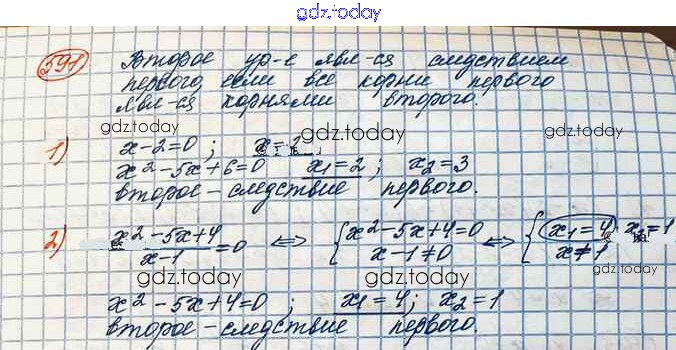 gdz.today
gdz.today
591) Второе ур-е явл-ся следствием
первого, если все корни первого
явл-ся корнями второго.
gdz.today gdz.today gdz.today
1) x-2=0; x=2
x²-5x+6=0 x₁=2; x₂=3
второе-следствие первого.
gdz.today gdz.today
2) x²-5x+4/x-1=0 ⇔ {x²-5x+4=0 x-1≠0 ⇔ {x₁=4, x₂=1 x≠1
gdz.today gdz.today
x²-5x+4=0; x₁=4; x₂=1
второе-следствие первого.
gdz.today gdz.today